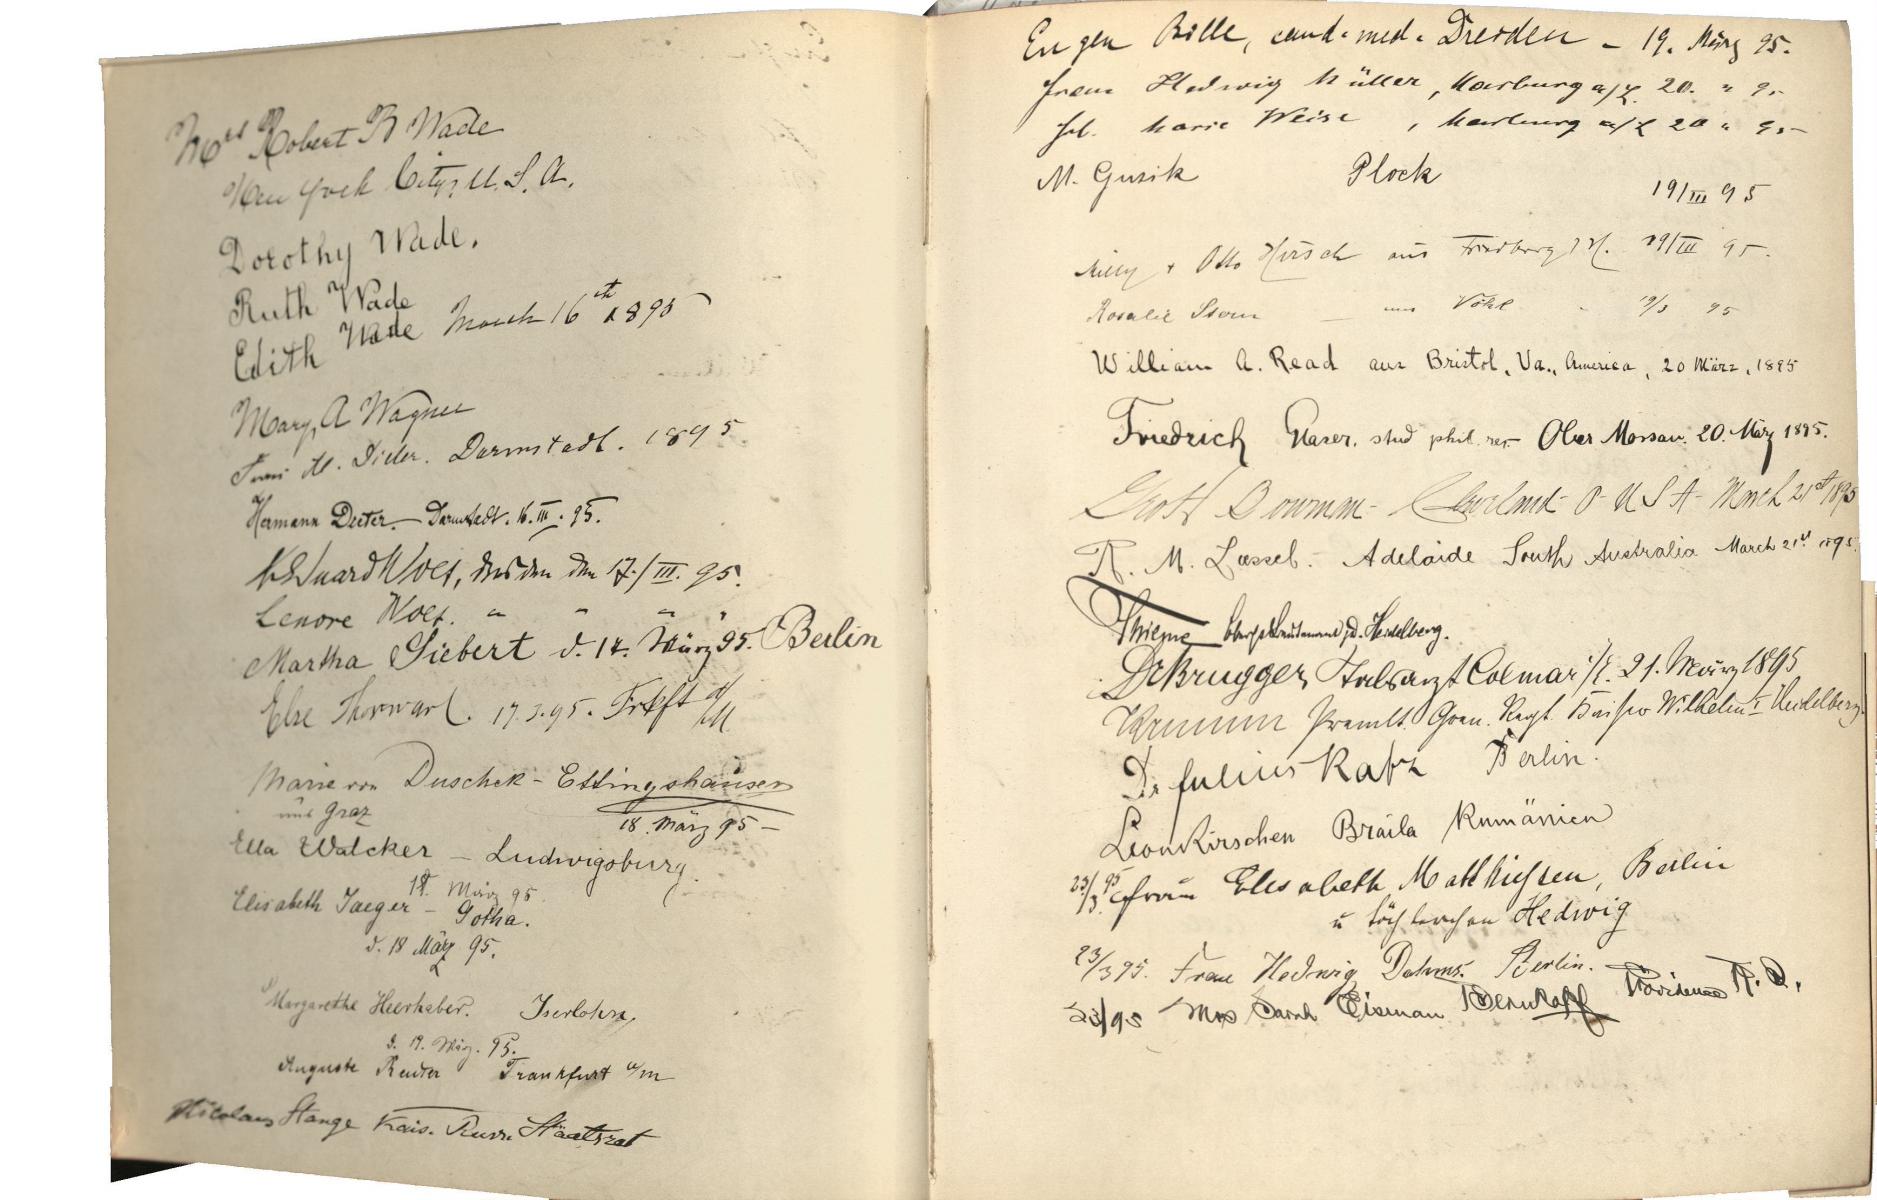 Mrs Robert B Wade
New York City, U.S.A.
Dorothy Wade.
Ruth Wade
Edith Wade March 16th 1895
Mary A Wagner
Frau M. Dieter. Darmstadt. 1895
Hermann Dieter. – Darmstadt. 16.III.95.
den 17./III. 95.
Lenore " " " "
Martha Siebert d. 17. März 95. Berlin
Else Thorwart. 17.3.95. Frkft a/M
Marie von Duschek-Ettingshausen
aus Graz
18. März 95 –
Ella Walcker – Ludwigsburg.
18. März 95
Elisabeth Jaeger – Gotha.
d. 18 März 95.
Margarethe Heerhaber. Iserlohn,
d. 19. März. 95.
Auguste Reuter Frankfurt a/m
Nicolaus Stange Kais. Russ. Staatsrat
Eugen Bille, cand. med. Dresden – 19. März 95.
Frau Hedwig Müller, Marburg a/L. 20. " 95
Frl. Marie Weise, Marburg a/L 20 " 95
M. Gusik Plock
19/III 95
Milly + Otto Hirsch aus Friedberg /H. 19/III 95.
Rosalie Stern – aus Vöhl - 19/3 95
William A. Read aus Bristol, Va., America, 20 März, 1895
Friedrich Glaser, stud phil. Ober Mossau. 20. März 1895.
Bowman - Cleveland - O - U S A - March 21st 1895
R. M. Laessel - Adelaide South Australia March 21st 1895.
Thieme Oberstlieutenant z.D. Heidelberg.
Dr Brugger, Stabsarzt Colmar i/E. 21. März 1895
Krumm Premlt. Gren. Regt. Kaiser Wilhelm I Heidelberg.
Dr Julius Katz Berlin.
Leon Kirschen Braila Rumänien
23/3. 95 Frau Elisabeth Matthiessen, Berlin
u Töchterchen Hedwig
23/3 95. Frau Hedwig Dahms. Berlin.
23/95 Mrs Sarah Eisman Bernkopf Providence R.I.